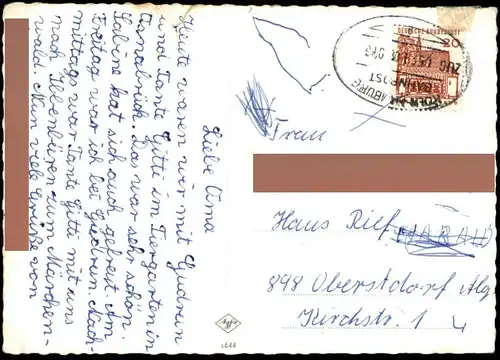 Liebe Oma
Heute waren wir mit Gudrun
und Tante Gitti im Tiergarten in
Osnabrück. Das war sehr schön.
Sabine hat sich auch gefreut. Am
Freitag war ich bei Gudrun. Nach-
mittags war Tante Gitti mit uns
nach Ibbenbüren zum Märchen-
wald. Nun viele Grüße von
DEUTSCHE BUNDESPOST
20
BAHNPOST
ZUG
Frau
Haus Rief
898 Oberstdorf Allg
Kirchstr. 1